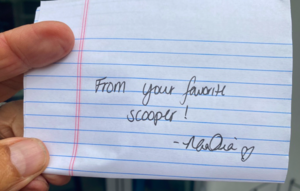 From your favorite
scooper!